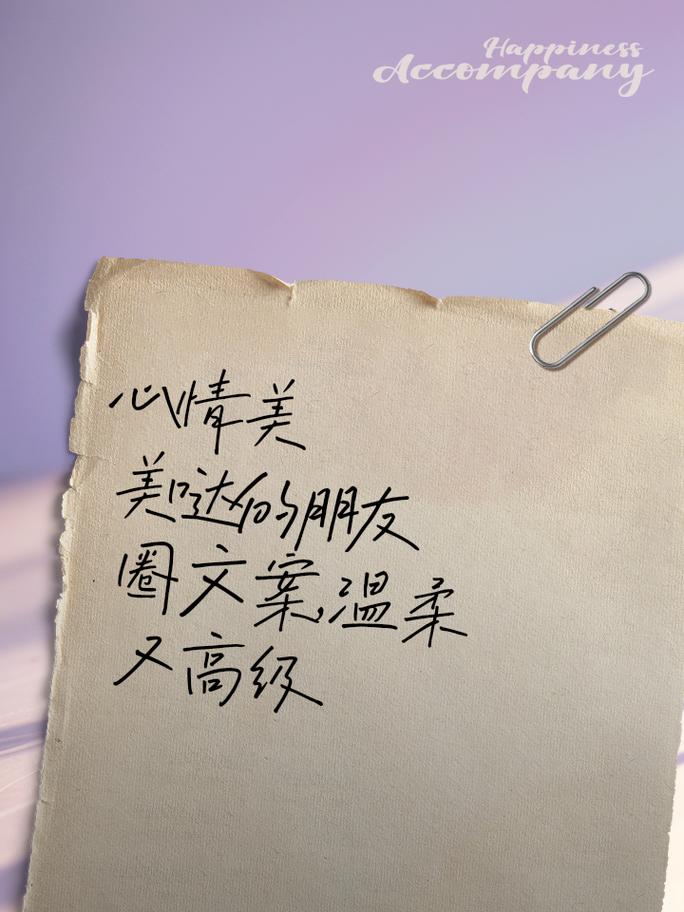 Happiness
Accompany
心情美
美哒的朋友
圈文案,温柔
又高级